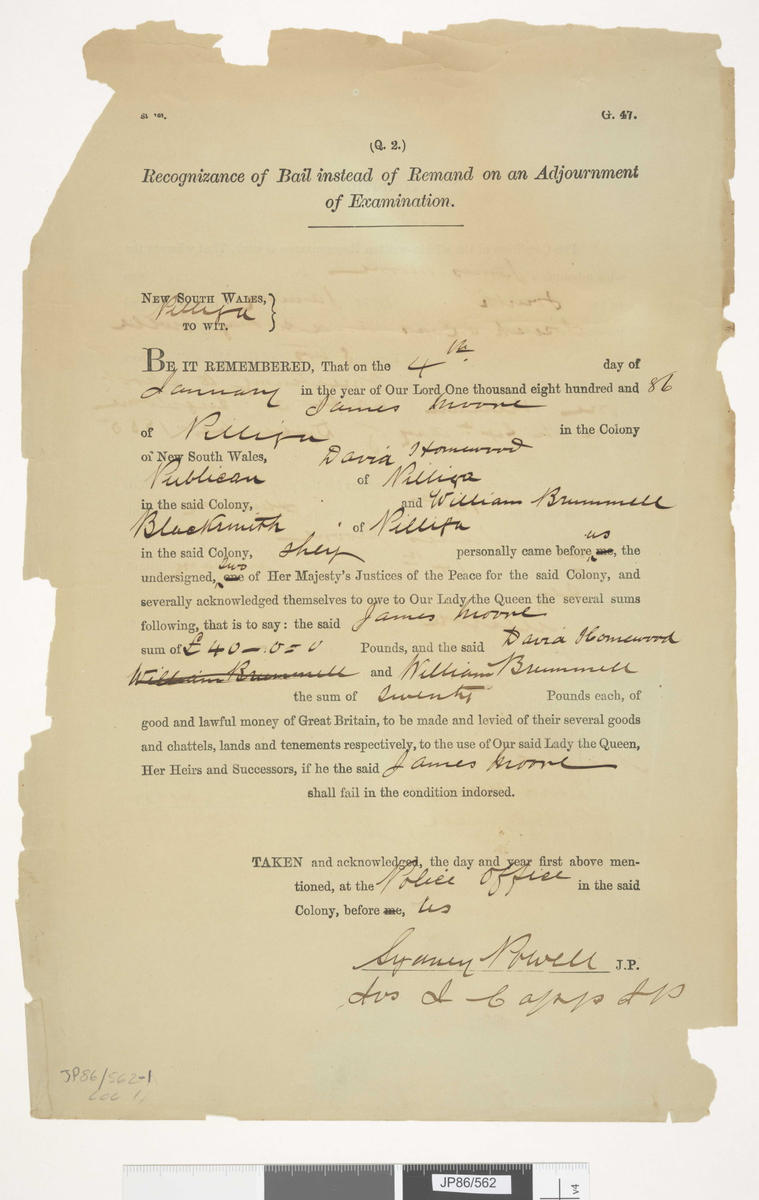 G. 47.
(Q. 2.)
Recognizance of Bail instead of Remand on an Adjournment
of Examination.
NEW SOUTH WALES, }
Pilliga
TO WIT.
BE IT REMEMBERED, That on the 4th day of
January in the year of Our Lord One thousand eight hundred and 86
James Moore
of Pilliga in the Colony
of New South Wales, David Homewood
Publican of Pilliga
in the said Colony, and William Brummell
Blacksmith of Pilliga
in the said Colony, personally came before me, us the
undersigned, one two of Her Majesty's Justices of the Peace for the said Colony, and
severally acknowledged themselves to owe to Our Lady the Queen the several sums
following, that is to say: the said James Moore
sum of £40-0=0 Pounds, and the said David Homewood
William Brummell and William Brummell
the sum of twenty Pounds each, of
good and lawful money of Great Britain, to be made and levied of their several goods
and chattels, lands and tenements respectively, to the use of Our said Lady the Queen,
Her Heirs and Successors, if he the said James Moore
shall fail in the condition indorsed.
TAKEN and acknowledged, the day and year first above men-
tioned, at the Police Office in the said
Colony, before me, us
Sydney Powell J.P.
Capp JP
JP86/562-1
JP86/562
v4